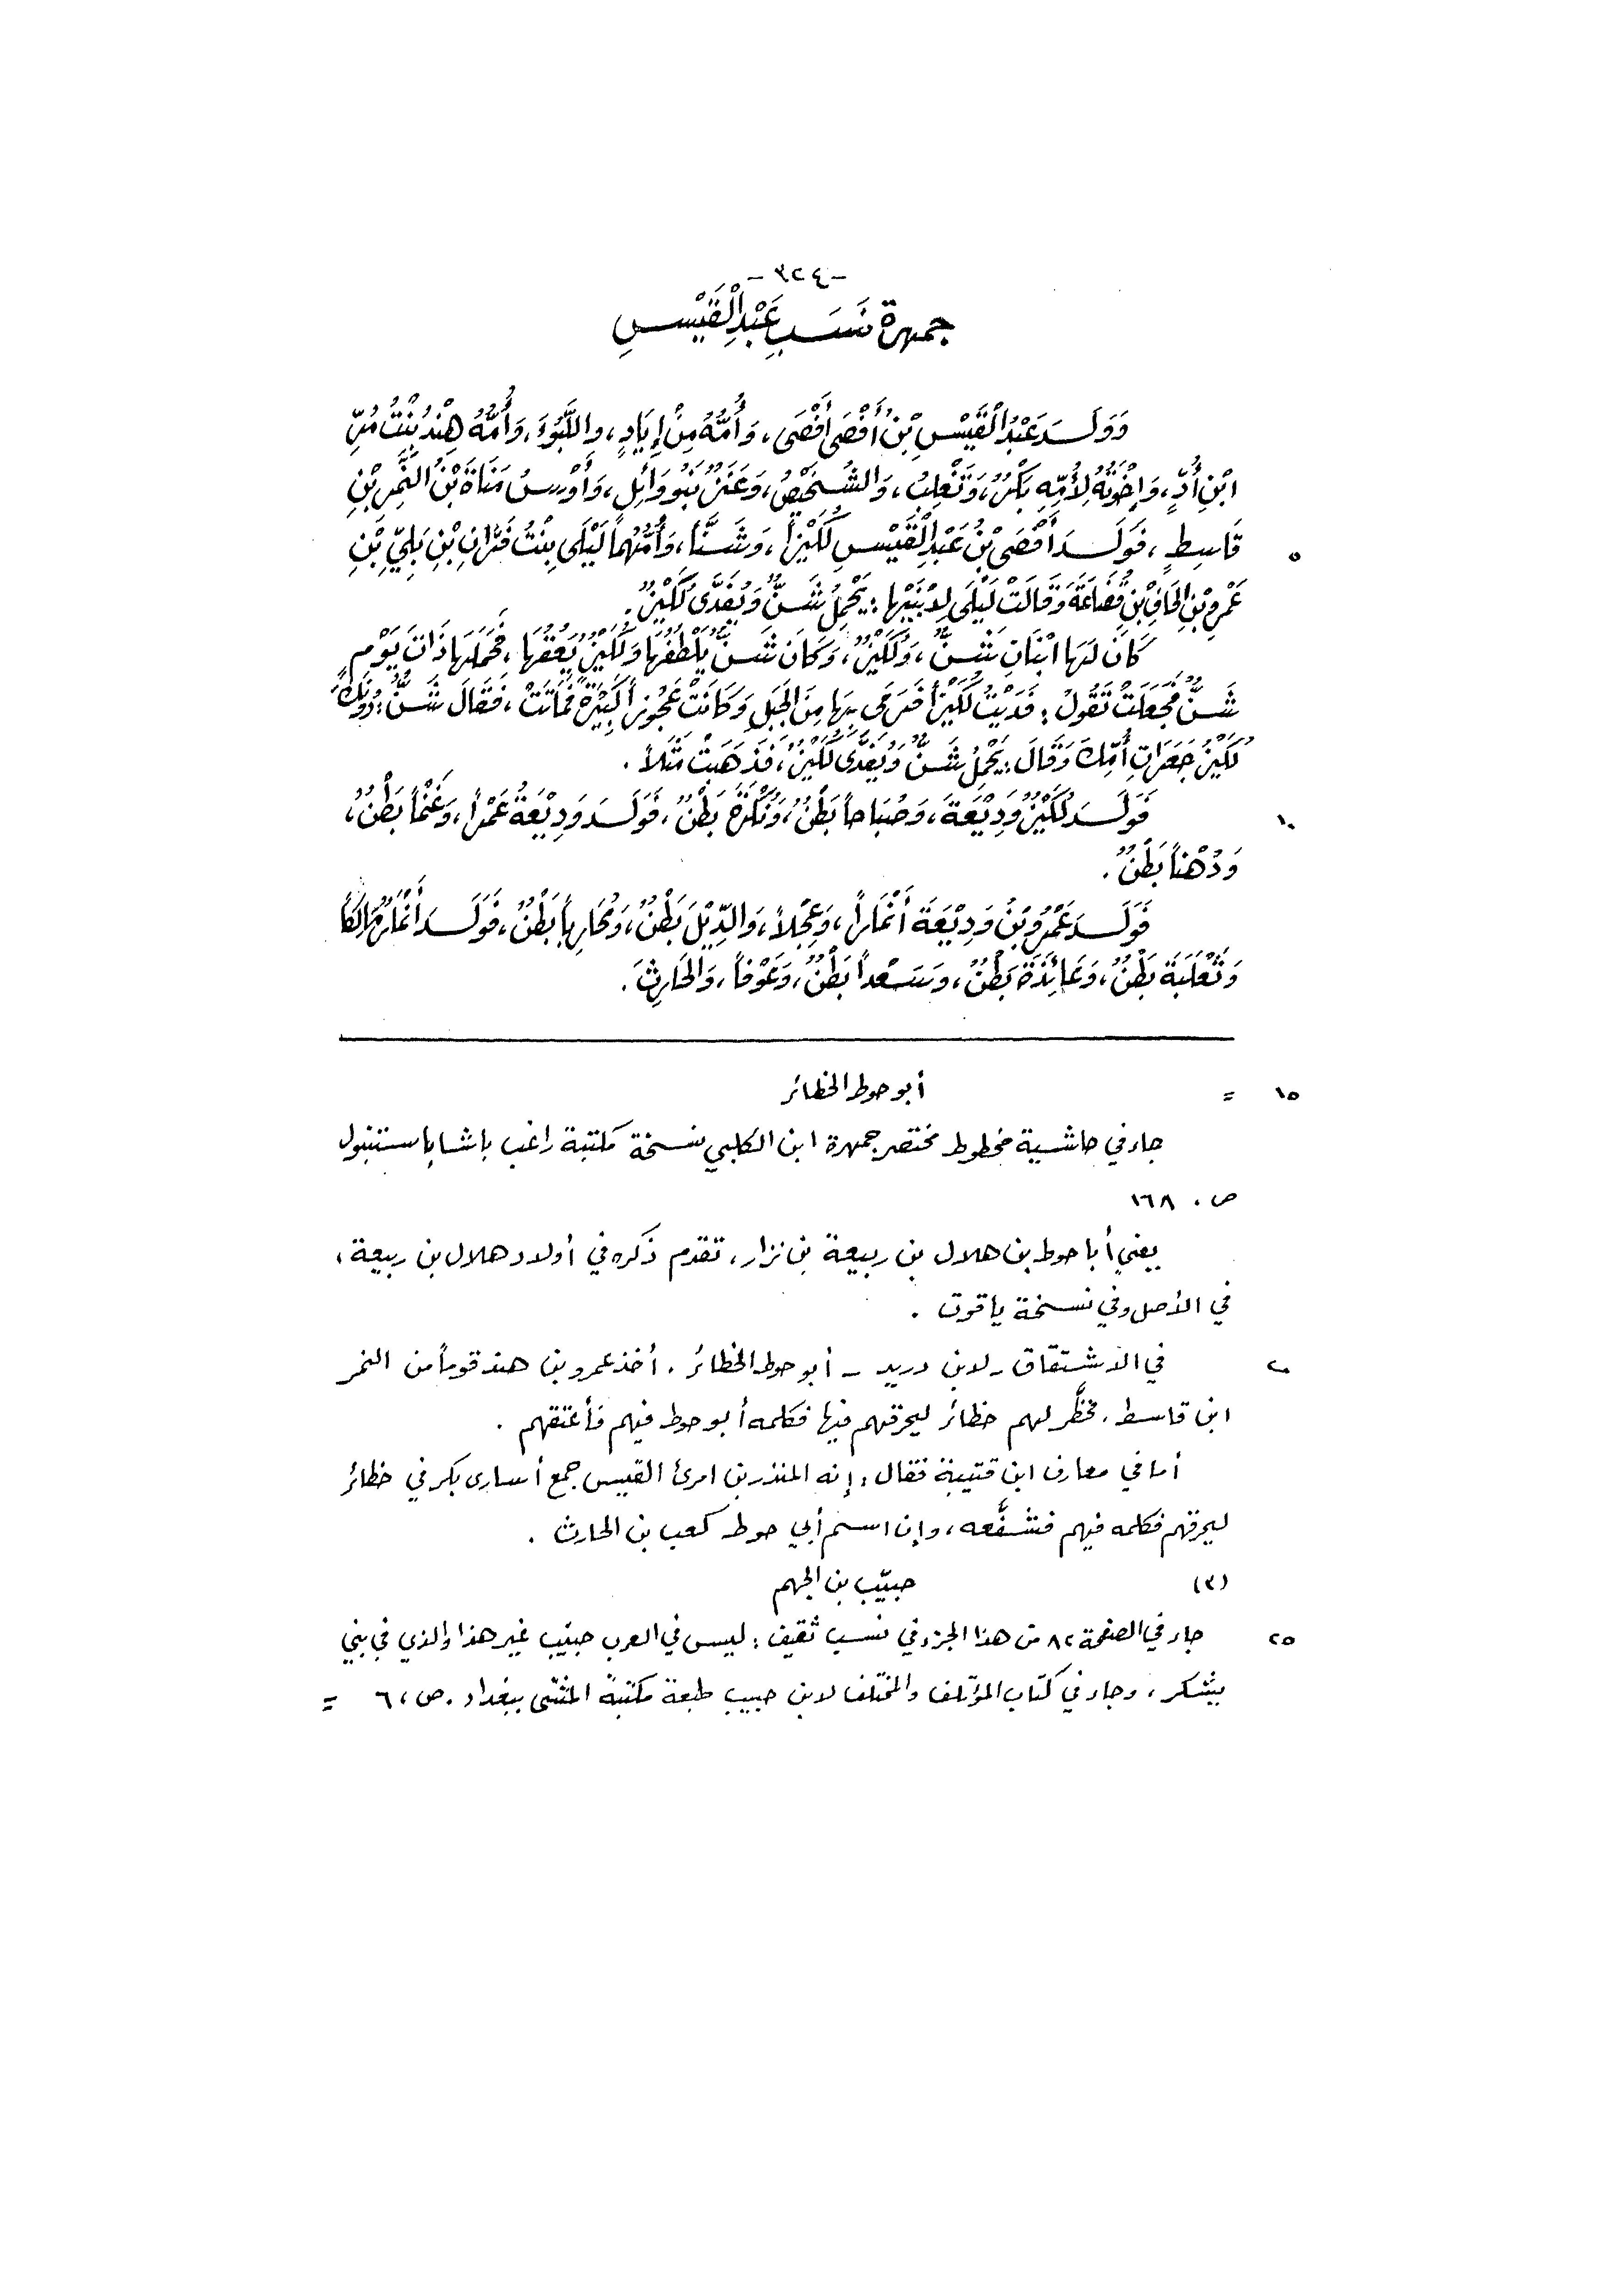 -٣٢٤-
جمهرة نَسَبِ عَبْدِ الْقَيْسِ
وَوَلَدَ عَبْدُ الْقَيْسِ بْنُ أَفْصَى أَفْصَى، وَأُمُّهُ مِنْ إِيَادٍ، وَاللَّبُوءَ، وَأُمُّهُ هِنْدُ بِنْتُ مُرِّ
ابْنِ أُدٍّ، وَإِخْوَتُهُ لِأُمِّهِ بَكْرٌ، وَتَغْلِبُ، وَالشُّخَيْصُ، وَعَنَزٌ بَنُو وَائِلٍ، وَأَوْسُ مَنَاةَ بْنُ النَّمِرِ بْنِ
٥ قَاسِطٍ، فَوَلَدَ أَفْصَى بْنُ عَبْدِ الْقَيْسِ لُكَيْزاً، وَشَنّاً، وَأُمُّهُمَا لَيْلَى بِنْتُ فَرَّانِ بْنِ بَلِيِّ بْنِ
عَمْرِو بْنِ الْحَافِ بْنِ قُضَاعَةَ وَقَالَتْ لَيْلَى لِابْنَيْهَا: يَحْمِلُ شَنٌّ وَيُفَدَّى لُكَيْزٌ.
كَانَ لَهَا ابْنَانِ شَنٌّ، وَلُكَيْزٌ، وَكَانَ شَنٌّ يُلْطِفُهَا وَلُكَيْزٌ يَعُقُّهَا، فَحَمَلَهَا ذَاتَ يَوْمٍ
شَنٌّ فَجَعَلَتْ تَقُولُ: فَدَيْتُ لُكَيْزاً فَرَمَى بِهَا مِنَ الْجَبَلِ وَكَانَتْ عَجُوزاً كَبِيْرَةً فَمَاتَتْ، فَقَالَ شَنٌّ: دُونَكَ
لُكَيْزُ جَعَرَاتِ أُمِّكَ وَقَالَ: يَحْمِلُ شَنٌّ وَيُفَدَّى لُكَيْزٌ، فَذَهَبَتْ مَثَلاً.
١٠ فَوَلَدَ لُكَيْزٌ وَدِيْعَةَ، وَصُبَاحاً بَطْنٌ، وَنُكْرَةَ بَطْنٌ، فَوَلَدَ وَدِيْعَةُ عَمْراً، وَغَنْماً بَطْنٌ،
وَدُهْناً بَطْنٌ.
فَوَلَدَ عَمْرُو بْنُ وَدِيْعَةَ أَنْمَاراً، وَعِجْلاً، وَالدِّيْلَ بَطْنٌ، وَمُحَارِباً بَطْنٌ، فَوَلَدَ أَنْمَارٌ مَالِكاً
وَثَعْلَبَةَ بَطْنٌ، وَعَائِذَةَ بَطْنٌ، وَسَعْداً بَطْنٌ، وَعَوْفاً، وَالْحَارِثَ.
١٥ = أبو حوط الخطائر
جاء في حاشية مخطوط مختصر جمهرة ابن الكلبي نسخة مكتبة راغب باشا باستنبول
ص. ١٦٨
يعني أبا حوط بن هلال بن ربيعة بن نزار، تقدم ذكره في أولاد هلال بن ربيعة،
في الأصل وفي نسخة ياقوت.
٢٠ في الاشتقاق - لابن دريد - أبو حوط الخطائر. أخذ عمرو بن هند قوماً من النمر
ابن قاسط. فخظَّر لهم خظائر ليحرقهم فيها فكلمه أبو حوط فيهم فأعتقهم.
أما في معارف ابن قتيبة فقال: إنه المنذر بن امرئ القيس جمع أسارى بكر في خظائر
ليحرقهم فكلمه فيهم فشفَّعه، وإن اسم أبي حوط كعب بن الحارث.
(٣) حبيّب بن الجهم
٢٥ جاء في الصفحة ٨٢ من هذا الجزء في نسب ثقيف: ليس في العرب حبيّب غير هذا والذي في بني
يشكر، وجاء في كتاب المؤتلف والمختلف لابن حبيب طبعة مكتبة المثنى ببغداد. ص، ٦ =